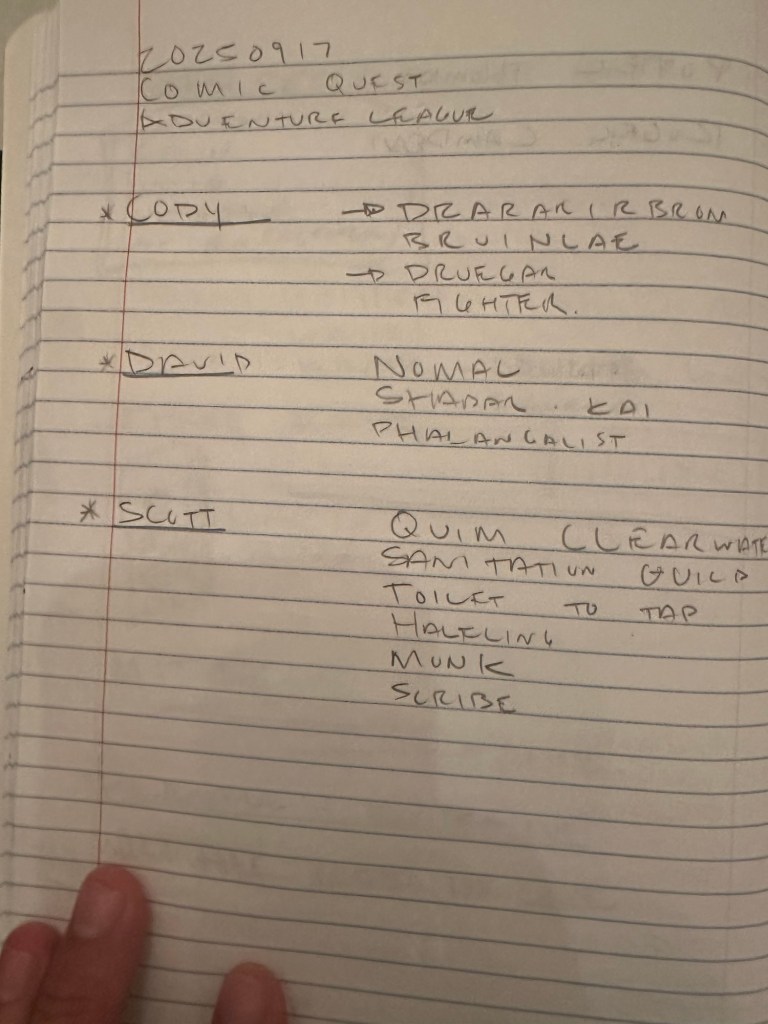 20250917
COMIC QUEST
ADVENTURE LEAGUE
* CODY → DRARARIRBROM
BRUINLAE
→ DRUEGAR
FIGHTER.
* DAVID NOMAL
SHADAR. KAI
PHALANGALIST
* SCOTT QUIM CLEARWATE
SANITATION GUILD
TOILET TO TAP
HALFLING
MONK
SCRIBE